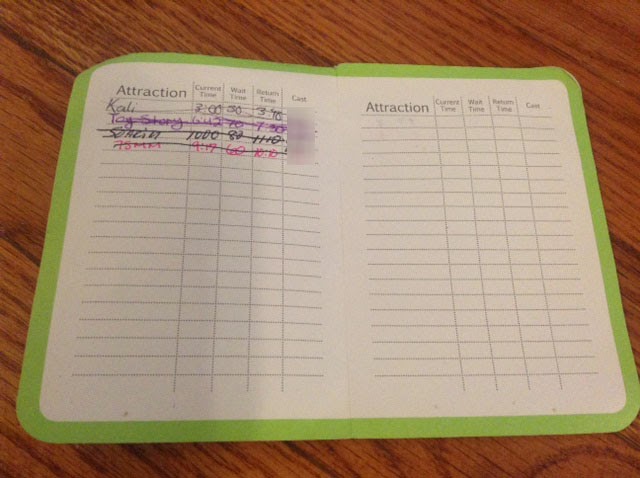 Attraction Current Time Wait Time Return Time Cast
Kali 3:00 30 3:40
Toy Story 6:42 70 7:50
Soarin 1000 80 11:10
TSMM 9:19 60 10:10
Attraction Current Time Wait Time Return Time Cast